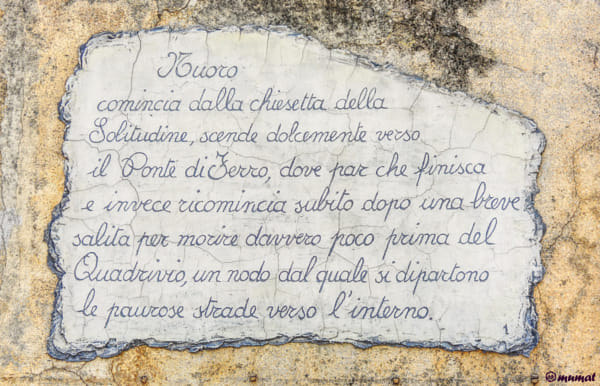 Nuoro
comincia dalla chiesetta della
Solitudine, scende dolcemente verso
il Ponte di Ferro, dove par che finisca
e invece ricomincia subito dopo una breve
salita per morire davvero poco prima del
Quadrivio, un nodo dal quale si dipartono
le paurose strade verso l'interno.
1
mumat